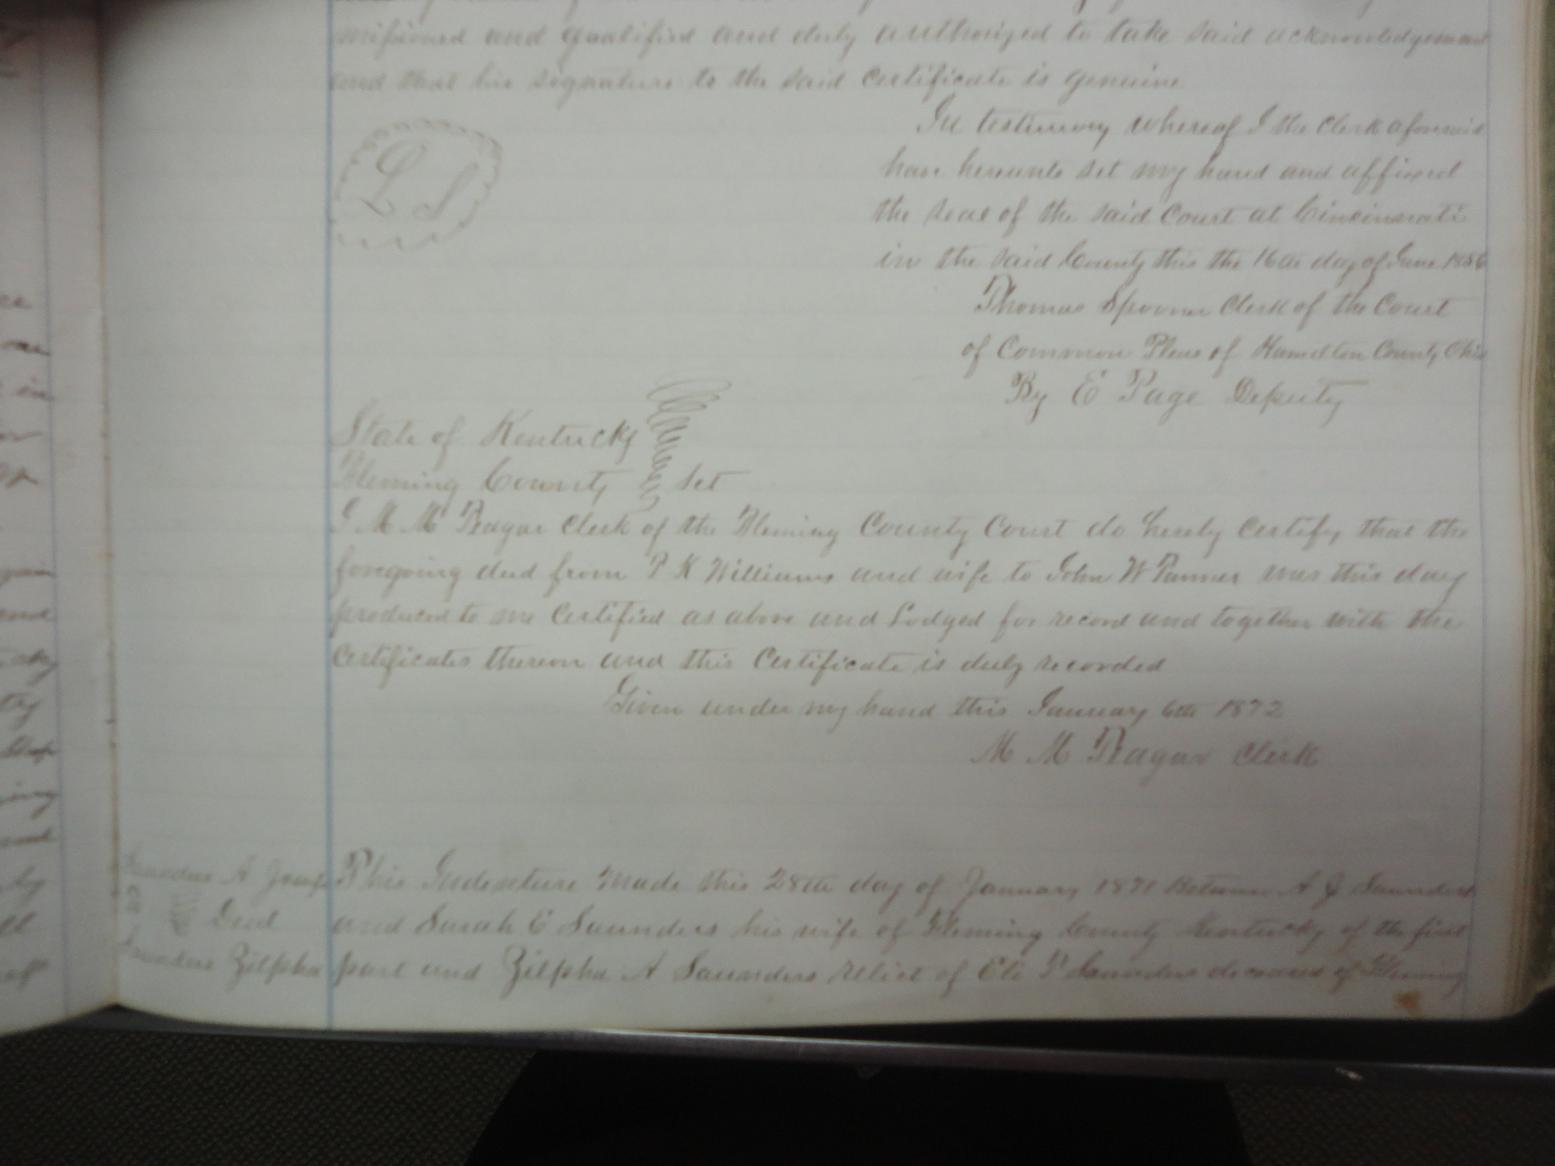 missioned and qualified and duly authorized to take said acknowledgement
and that his signature to the said certificate is genuine
In testimony whereof I the Clerk aforesaid
L S
have hereunto set my hand and affixed
the seal of the said Court at Cincinnati
in the said County this the 16th day of June 1856
Thomas Spooner Clerk of the Court
of Common Pleas of Hamilton County Ohio
By E Page Deputy
State of Kentucky
Fleming County Sct
I M M Teagar Clerk of the Fleming County Court do hereby certify that the
foregoing deed from P K Williams and wife to John W was this day
produced to me Certified as above and Lodged for record and together with the
Certificates thereon and this Certificate is duly recorded
Given under my hand this January 6th 1872
M M Teagar Clerk
Saunders A J
Deed
Saunders Zilpha
This Indenture Made this 28th day of January 1871 Between A J Saunders
and Sarah E Saunders his wife of Fleming County Kentucky of the first
part and Zilpha A Saunders relict of Eli T Saunders deceased of Fleming